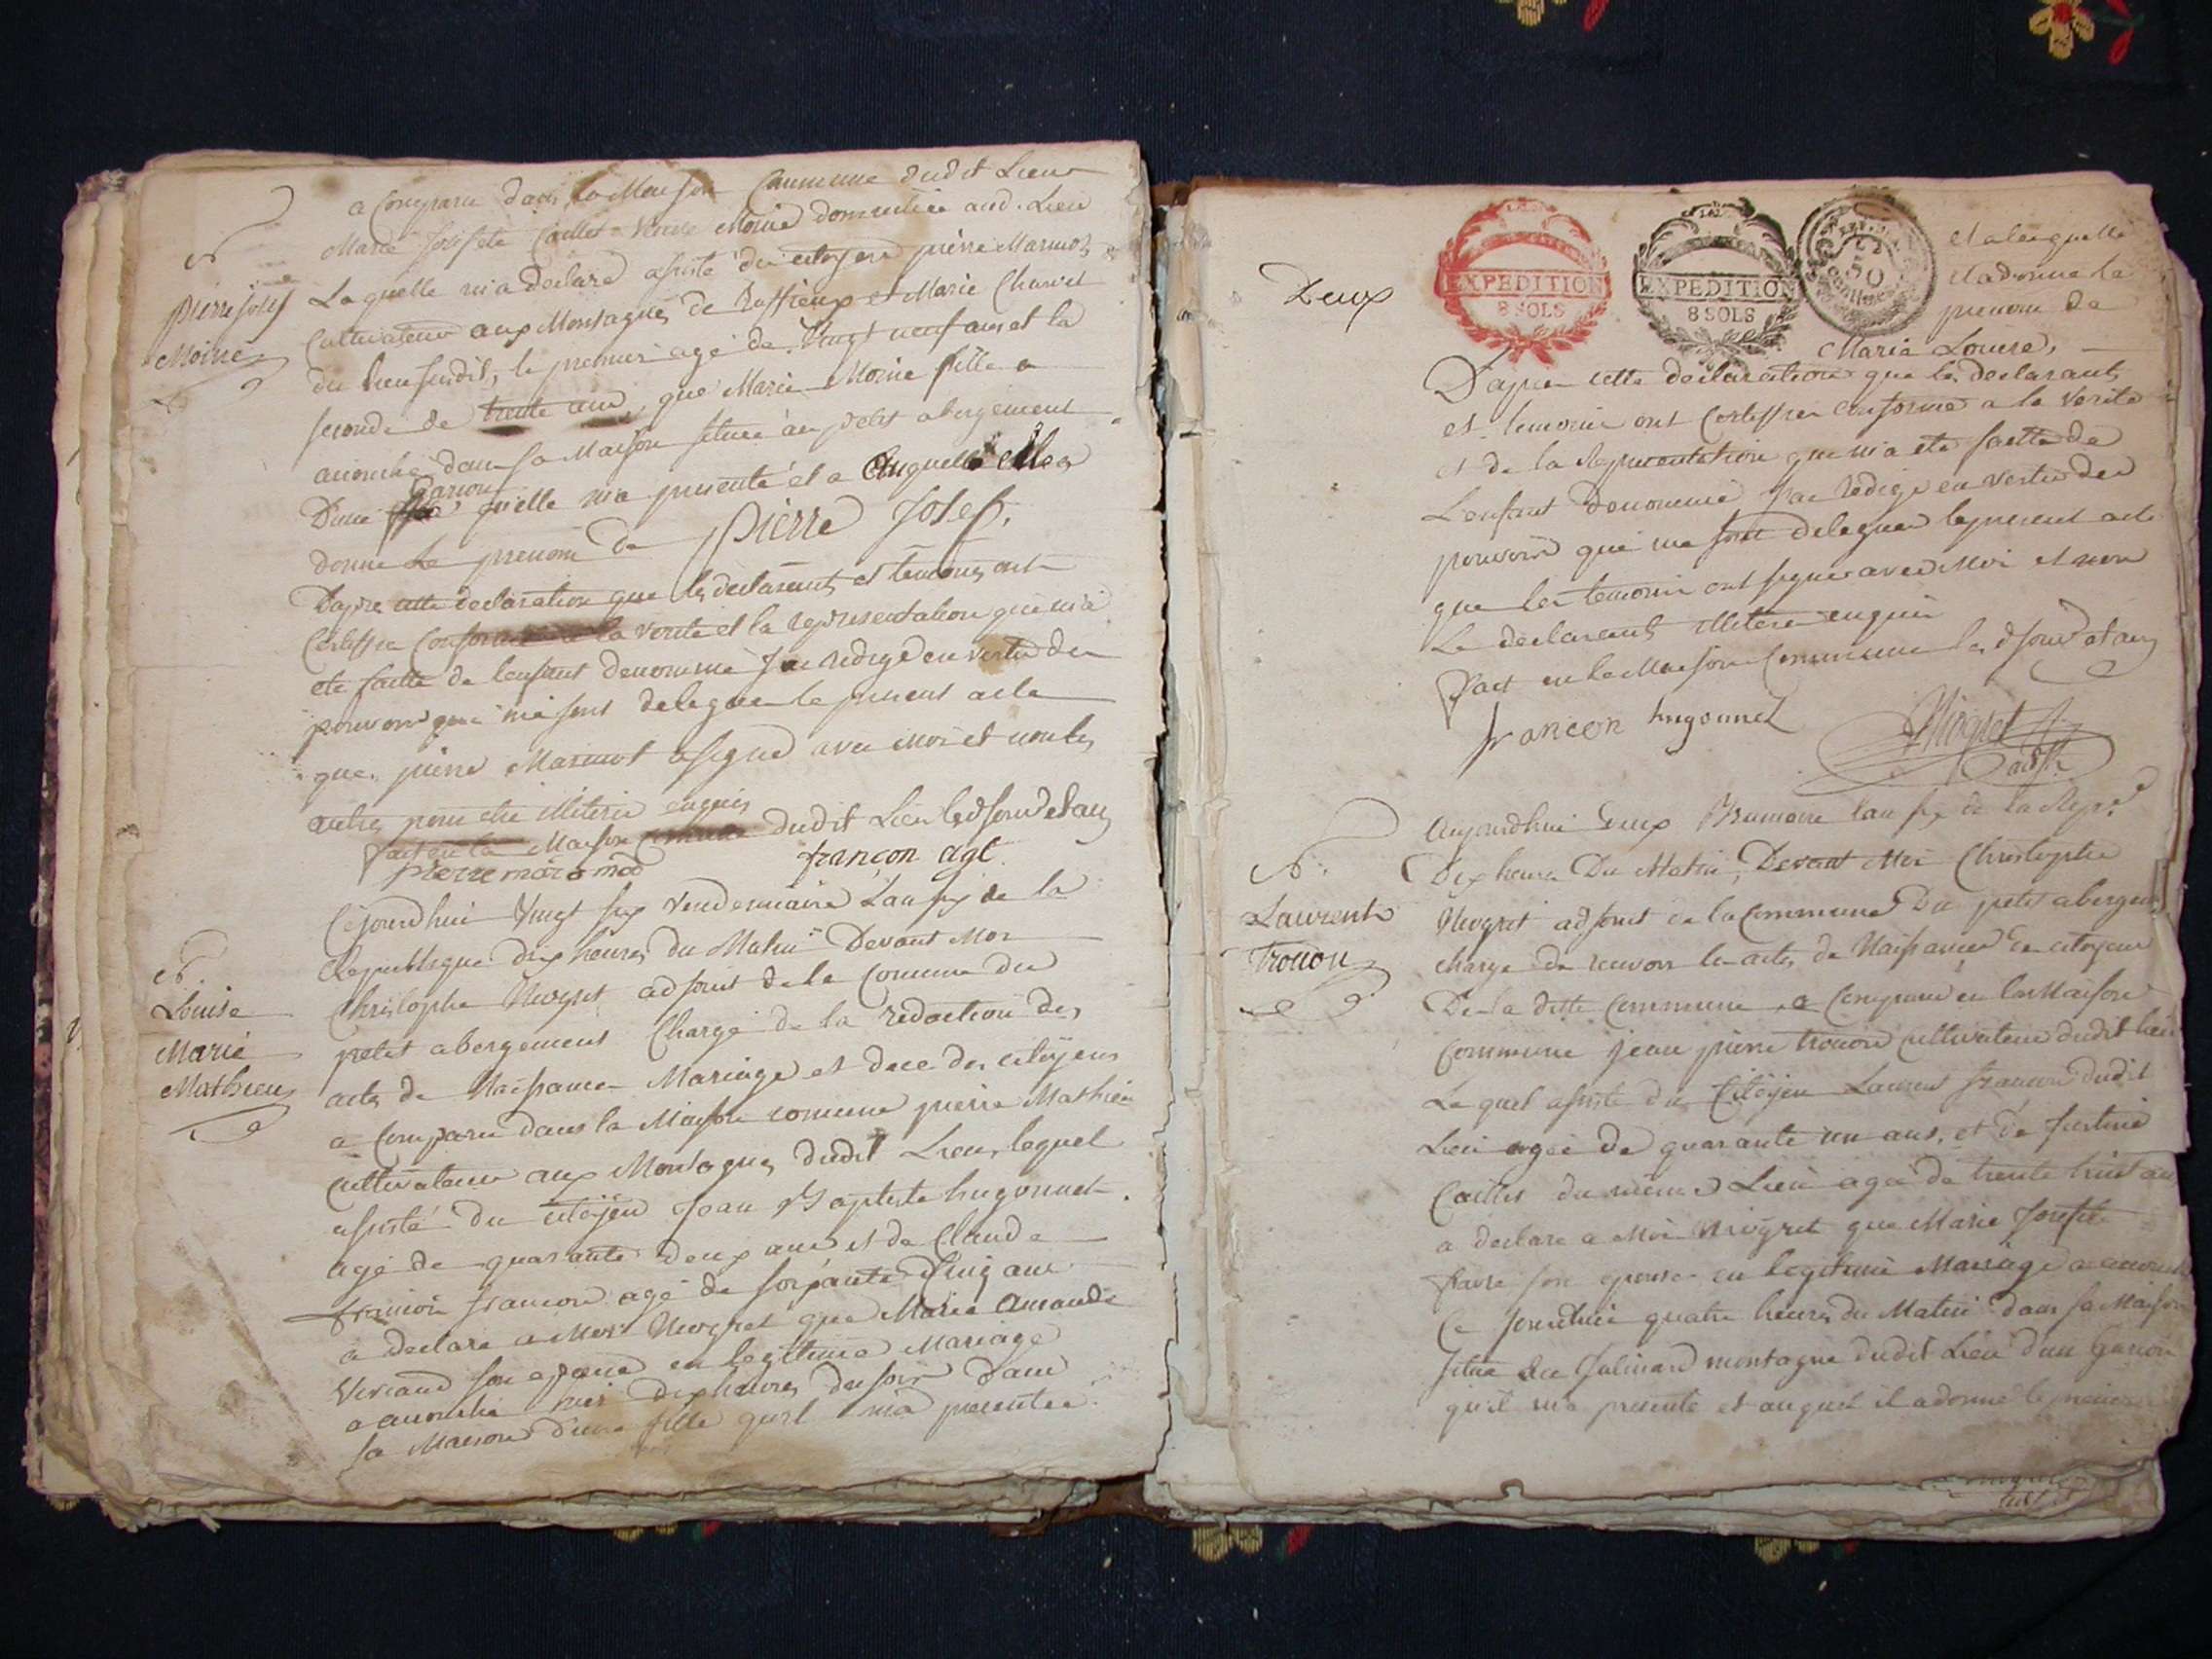 N
pierre josef
Moine
a Comparu dans la Maison Commune dudit Lieu
Marie Josefete Caillet Moine domiciliée aud. Lieu
Laquelle m'a declaré asisté du citoyen pierre Marmot
Cultivateur aux Montagnes de Ruffieux et Marie Charvet
du lieu susdit, le premier agé de Vingt neuf ans et la
seconde de trente ans, que Marie Moine fille a
accouché dans sa Maison située au petit abergement
Garson
D'une quelle m'a presenté et a auquelle elle a
donné le prenom de pierre Josef.
Dapres cette declaration que les declarants et temoins ont
Certiffier Conforme a la verité et la representation qui m'a
eté faitte de lenfant denommé J'ai redigé en vertu des
pouvoirs qui me sont delegués le present acte
que pierre Marmot a signé avec Moi et non les
autres pour etre illiteré enquis
fait en la Maison Commune dudit Lieu les Jour et an
pierre marmod françon agt.
N.
Louise
Marie
Mathieu
Cejourdhui Vingt six Vendemiaire Lan six de la
Republique dix heures du Matin Devant Moi
Christophe Niogret adjoint de la Comune du
petit abergement Chargé de la redaction des
actes de Naissance Mariage et decé des citoyens
a Comparu dans la Maison comune pierre Mathieu
Cultivateur aux Montagnes dudit Lieu, lequel
asisté du citoyen Jean Baptiste hugonnet
agé de quarante deux ans et de Claude
françon agé de soixante Cinq ans
a declaré a Moi Niogret que Marie Amande
Viviand son epouse en legitime Mariage
a accouché hier dix heures du soir dans
sa Maison d'une fille quil m'a presentée
Deux
EXPEDITION
8 SOLS
EXPEDITION
8 SOLS
50
et a laquelle
il a donné le
prenom de
Marie Louise,
Dapres cette declaration que les declarants
et temoins ont Certiffier conforme a la verité
et de la Representation que m'a eté faitte de
L'enfant denommé J'ai redigé en vertu des
pouvoirs qui me sont delegués le present acte
que les temoins ont signés avec Moi et non
Le declarant illiteré enquis
fait en la Maison Commune les Jour et an
françon hugonnet Niogret
adjt
N.
Laurent
Trocon
Aujourdhui deux Brumaire lan six de la Rep.e
Dix heures Du Matin, Devant Moi Christophe
Niogret adjoint de la Commune Du petit abergement
charge de recevoir les actes de Naissances des citoyens
De la ditte Commune, a Comparu en la Maison
Commune jean pierre trocon cultivateur dudit lieu
Le quel asisté du Citoyen Laurent françon dudit
Lieu agé de quarante un ans, et de Justine
Caillet du même Lieu agé de trente huit ans
a declaré a Moi Niogret que Marie Josefte
favre son epouse en legitime Mariage a accouché
Ce Jourdhui quatre heures du Matin dans sa Maison
situé au Julinard montagne dudit Lieu d'un Garson
qu'il m'a presenté et auquel il a donné le prenom